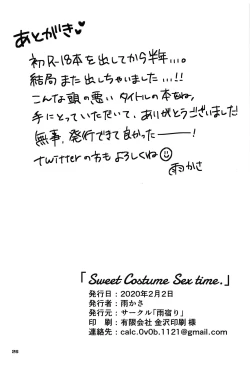 あとがき♥
初R-18本を出してから半年…。
結局また出しちゃいました…!!
こんな頭の悪いタイトルの本をね、
手にとっていただいて、ありがとうございました!
無事、発行できて良かった――!
twitterの方もよろしくね☺
雨かさ
「Sweet Costume Sex time.」
発行日：2020年2月2日
発行者：雨かさ
発行元：サークル「雨宿り」
印　刷：有限会社 金沢印刷 様
連絡先：calc.0v0b.1121@gmail.com